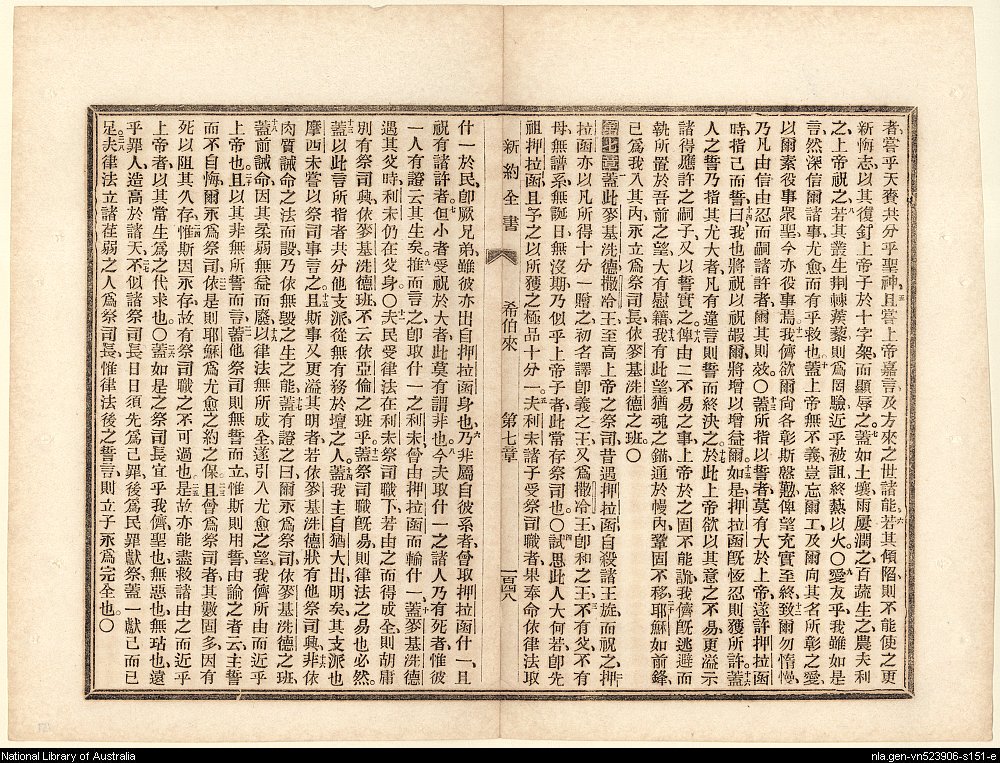 者嘗乎天賚共分乎聖神且嘗上帝嘉言及方來之世諸能若其傾陷則不能使之更
新悔志以其復釘上帝子於十字架而顯辱之蓋如土壤雨屢潤之百蔬生之農夫利
之上帝祝之若其叢生荊棘蒺藜則爲罔驗近乎被詛終爇以火〇愛友乎我雖如是
言然深信爾諸事尤愈而有乎救也蓋上帝無不義豈忘爾工及爾向其名所彰之愛
以爾素役事衆聖今亦役事焉我儕欲爾尙各彰斯慇懃俾望充實至終致爾勿惰慢
乃凡由信由忍而嗣諸許者爾其則效〇蓋所指以誓者莫有大於上帝遂許押拉函
時指己而誓曰我也將祝以祝嘏爾將增以增益爾如是押拉函旣恆忍則獲所許蓋
人之誓乃指其尤大者凡有違言則誓而終決之於此上帝欲以其意之不易更溢示
諸得應許之嗣子又以誓實之俾由二不易之事上帝於之固不能謊我儕旣逃避而
執所置於吾前之望大有慰藉我有此望猶魂之錨通於幔內鞏固不移耶穌如前鋒
已爲我入其內永立爲祭司長依麥基洗德之班〇
蓋此麥基洗德撒冷王至高上帝之祭司昔遇押拉函自殺諸王旋而祝之押
拉函亦以凡所得十分一贈之初名譯卽義之王又爲撒冷王卽和之王不有父不有
母無譜系無誕日無沒期乃似乎上帝子者此常存祭司也〇試思此人大何若卽先
祖押拉函且予之以所獲之極品十分一夫利未諸子受祭司職者果奉命依律法取
新約全書
希伯來
第七章
一百四八
什一於民卽厥兄弟雖彼亦出自押拉函身也乃非屬自彼系者曾取押拉函什一且
祝有諸許者但小者受祝於大者此莫有謂非也今夫取什一之諸人乃有死者惟彼
一人有證云其生矣推而言之卽取什一之利未曾由押拉函而輸什一蓋麥基洗德
遇其父時利未仍在父身〇夫民受律法在利未祭司職下若由之而得成全則胡庸
別有祭司興依麥基洗德班不云依亞倫之班乎蓋祭司職旣易則律法之易也必然
蓋以此言所指者共分他支派從無有務於壇之人蓋我主自猶大出明矣其支派也
摩西未嘗以祭司事言之且斯事又更溢其明者若依麥基洗德狀有他祭司興非依
肉質誡命之法而設乃依無毀之生之能蓋有證之曰爾永爲祭司依麥基洗德之班
蓋前誡命因其柔弱無益而廢以律法無所成全遂引入尤愈之望我儕所由而近乎
上帝也且以其非無所誓而言蓋他祭司則無誓而立惟斯則用誓由諭之者云主誓
而不自悔爾永爲祭司依是則耶穌爲尤愈之約之保且曾爲祭司者其數固多因有
死以阻其久存惟斯因永存故有祭司職之不可過也是故亦能盡救諸由之而近乎
上帝者以其常生爲之代求也〇蓋如是之祭司長宜乎我儕聖也無惡也無玷也遠
乎罪人造高於諸天不似諸祭司長日日須先爲己罪後爲民罪獻祭蓋一獻己而已
足夫律法立諸荏弱之人爲祭司長惟律法後之誓言則立子永爲完全也〇
National Library of Australia
nla.gen-vn523906-s151-e